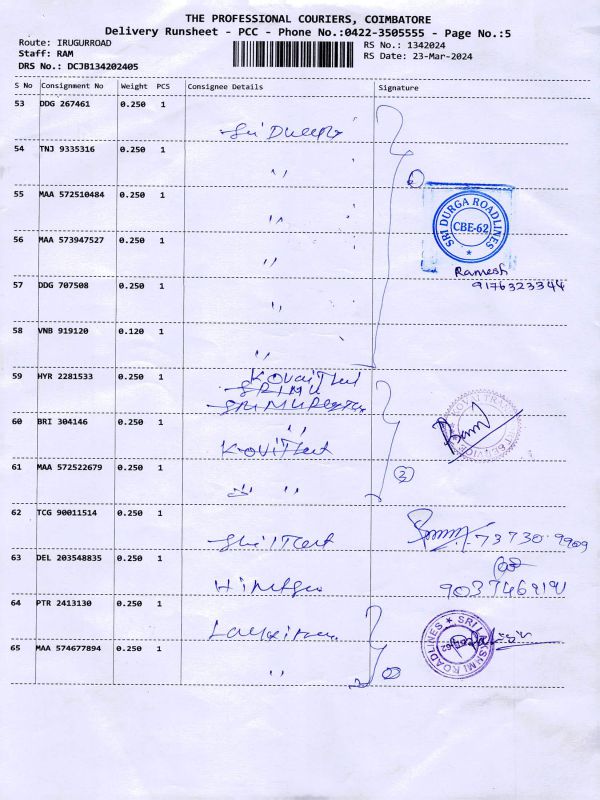 THE PROFESSIONAL COURIERS, COIMBATORE
Delivery Runsheet - PCC - Phone No.:0422-3505555 - Page No.:5
Route: IRUGURROAD
RS No.: 1342024
Staff: RAM
RS Date: 23-Mar-2024
DRS No.: DCJB134202405
S No Consignment No Weight PCS Consignee Details Signature
53 DDG 267461 0.250 1
Sri Durga
54 TNJ 9335316 0.250 1
,,
55 MAA 572510484 0.250 1
,,
SRI DURGA ROADLINES
CBE-62
56 MAA 573947527 0.250 1
,,
Ramesh
57 DDG 707508 0.250 1
9176323344
,,
58 VNB 919120 0.120 1
,,
59 HYR 2281533 0.250 1
60 BRI 304146 0.250 1
,,
61 MAA 572522679 0.250 1
,, ,,
2
62 TCG 90011514 0.250 1
73730.9909
63 DEL 203548835 0.250 1
64 PTR 2413130 0.250 1
SRI LAKSHMI ROADLINES
65 MAA 574677894 0.250 1
,,